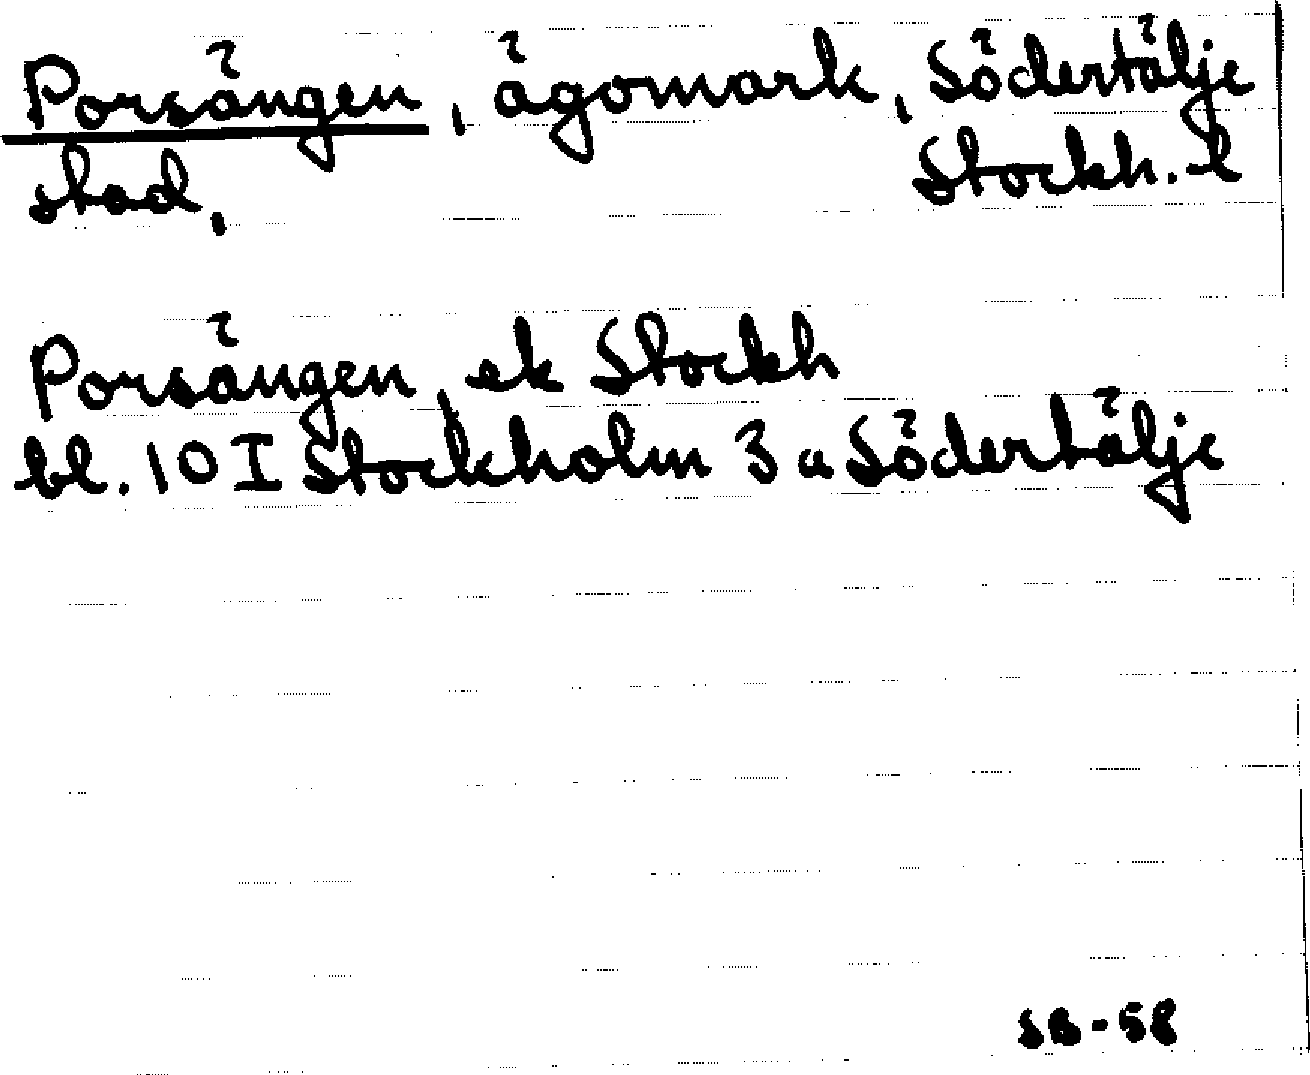 Porsängen, ägomark, Södertälje
stad, Stockh. l
Porsängen, ek Stockh
bl. 10 I Stockholm 3 a Södertälje
SB-58